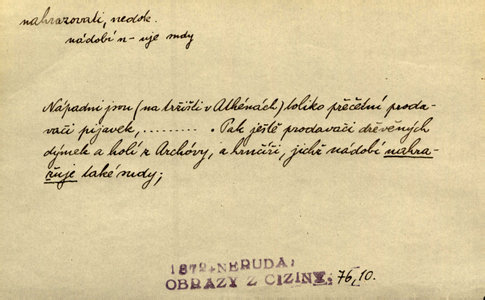 nahrazovati, nedok.
nádobí n- uje sudy
Nápadni jsou (na tržišti v Athénách) toliko přečetní proda-
vači pijavek, ......... . Pak ještě prodavači dřevěných
dýmek a holí z Archóvy, a hrnčíři, jichž nádobí nahra-
žuje také sudy;
1872, NERUDA:
OBRAZY Z CIZINY. 76, 10.